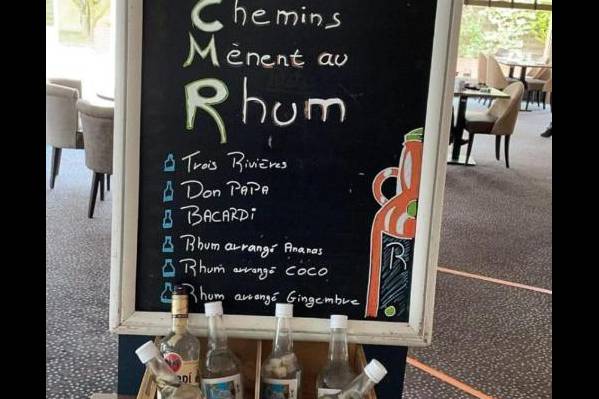 Chemins
Mènent au
Rhum
Trois Rivières
Don PAPA
BACARDi
Rhum arrangé Ananas
Rhum arrangé COCO
Rhum arrangé Gingembre
R